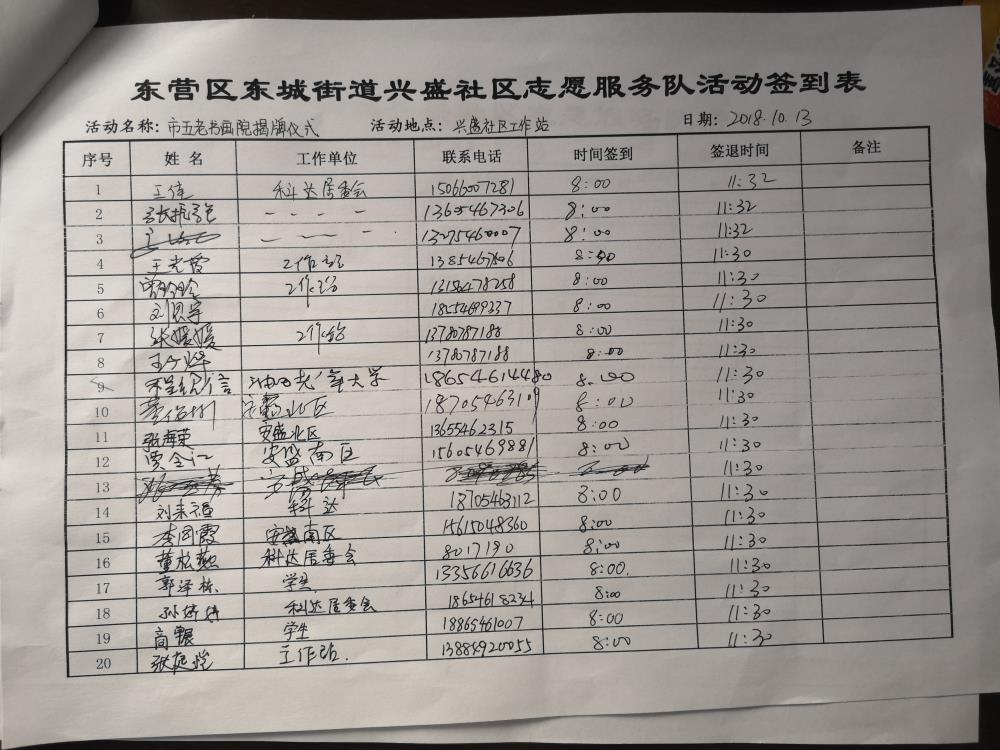 东营区东城街道兴盛社区志愿服务队活动签到表
活动名称：市五老书画院揭牌仪式 活动地点：兴盛社区工作站 日期：2018.10.13
序号 姓名 工作单位 联系电话 时间签到 签退时间 备注
1 王伟 科达居委会 15066007281 8:00 11:32
2 13605467306 8:00 11:32
3 13275460007 8:00 11:32
4 工作站 8:30 11:30
5 工作站 13156478258 8:00 11:30
6 18554699337 8:00 11:30
7 张媛媛 工作站 13780787188 8:00 11:30
8 13780787188 8:00 11:30
9 大学 18654614480 8:00 11:30
10 北区 18705463109 8:00 11:30
11 张海荣 安盛北区 13655462315 8:00 11:30
12 贾全江 安盛南区 15605469881 8:00 11:30
13 11:30
14 刘来福 科达 18705463112 8:00 11:30
15 李同霞 安盛南区 15615048360 8:00 11:30
16 董松 科达居委会 8017190 8:00 11:30
17 郭泽栋 学生 13356616636 8:00. 11:30
18 孙婷婷 科达居委会 18654618234 8:00 11:30
19 商银 学生 18865461007 8:00 11:30
20 工作站. 13884920055 8:00 11:30